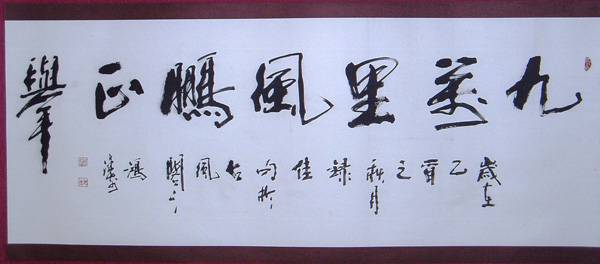 九萬里風鵬正舉
歲在乙酉之秋月錄佳句於古風閣